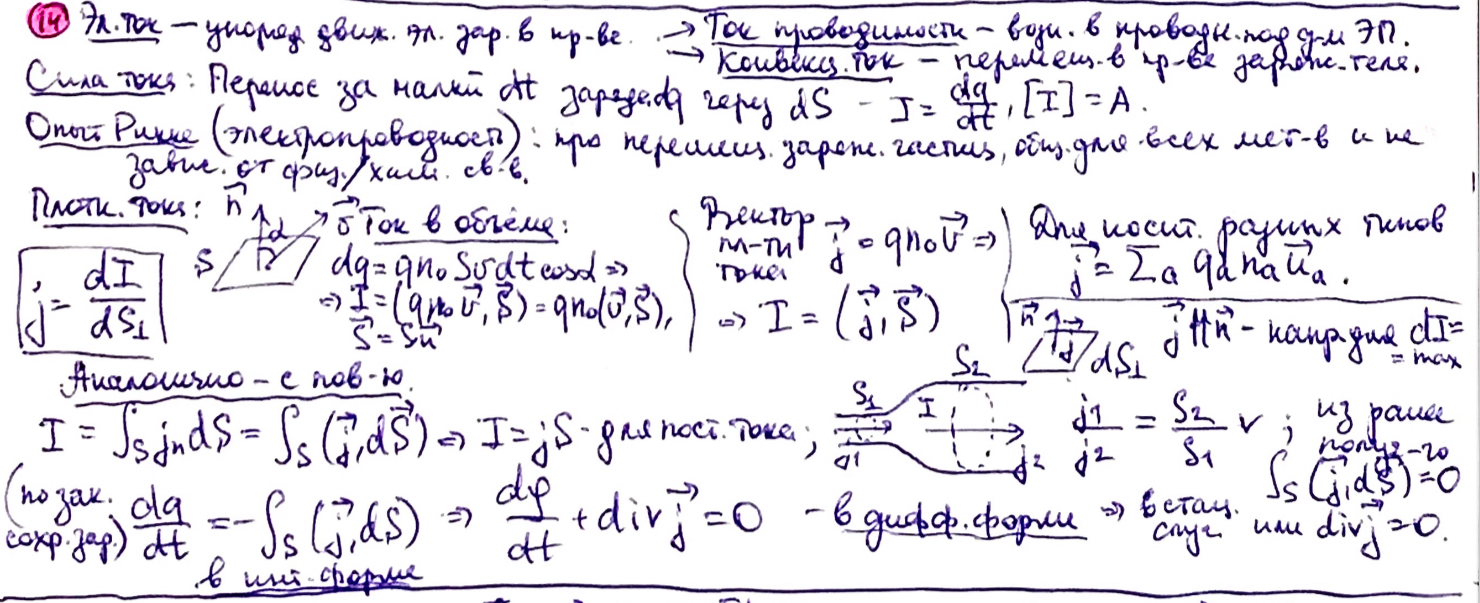 14 Эл. ток – упоряд. движ. эл. зар. в пр-ве. → Ток проводимости – возн. в проводн. под д-м ЭП.
→ Конвекц. ток – перемещ. в пр-ве заряж. тела.
Сила тока: Перенос за малый dt заряда dq через dS – I = dq/dt, [I] = A.
Опыт Рикке (электропроводность): про перемещ. заряж. частиц, общ. для всех мет-в и не
завис. от физ./хим. св-в.
Плотн. тока:
j = dI/dS⊥
n⃗ α v⃗ S
Ток в объёме:
dq = qn₀Sv dt cosα ⇒
⇒ I = (qn₀v⃗, S⃗) = qn₀(v⃗, S⃗),
S⃗ = Sn⃗
Вектор пл-ти тока j⃗ = qn₀v⃗ ⇒
⇒ I = (j⃗, S⃗)
Для носит. разных типов
j⃗ = Σₐ qₐnₐu⃗ₐ.
n⃗ j⃗ dS⊥ j⃗ ⇈ n⃗ – напр. для dI = max
Аналогично – с пов-ю.
I = ∫ₛ jₙdS = ∫ₛ (j⃗, dS⃗) ⇒ I = jS – для пост. тока;
S₁ I S₂ j1 j2
j1/j2 = S₂/S₁ v; из ранее получ-го ∫ₛ (j⃗, dS⃗) = 0
(по зак. сохр. зар.) dq/dt = –∫ₛ (j⃗, dS) ⇒ dρ/dt + div j⃗ = 0 – в дифф. форме ⇒ в стац. случ. или div j⃗ = 0.
в инт. форме